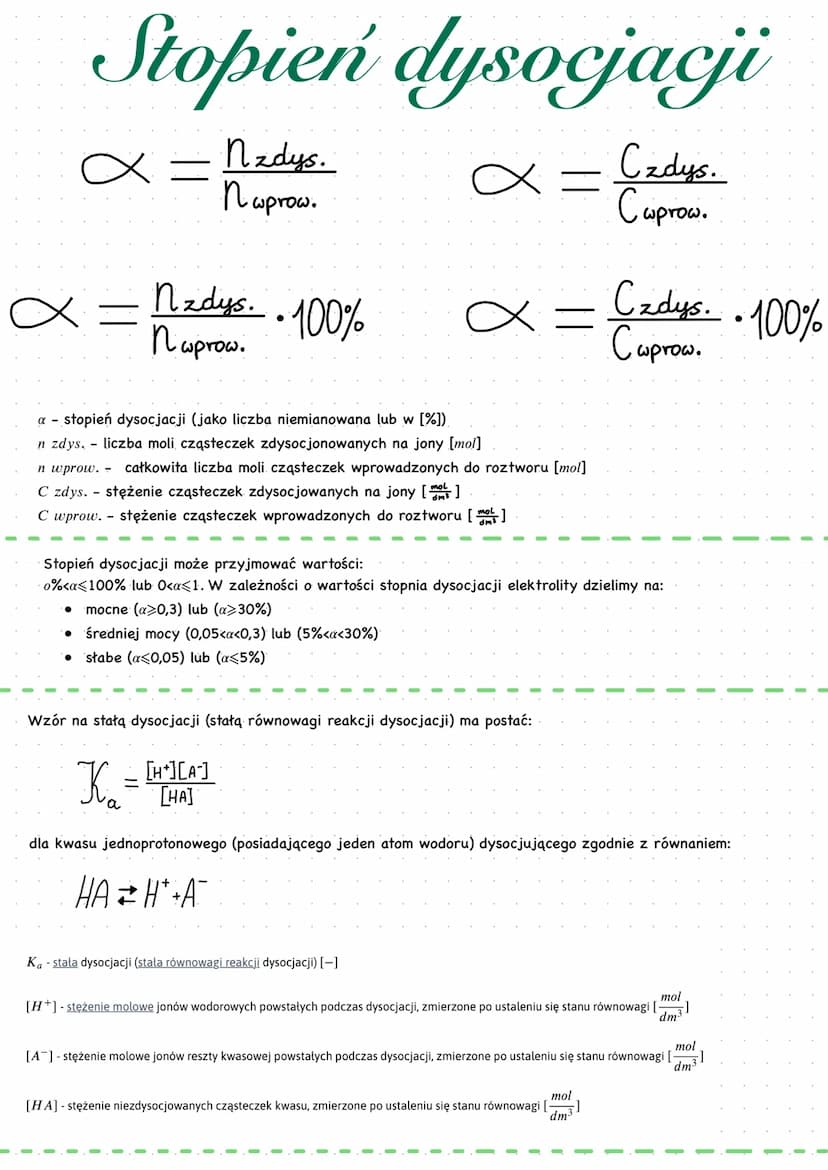 Stopień dysocjacji
α = n zdys. / n wprow.
α = C zdys. / C wprow.
α = n zdys. / n wprow. · 100%
α = C zdys. / C wprow. · 100%
α – stopień dysocjacji (jako liczba niemianowana lub w [%])
n zdys. – liczba moli cząsteczek zdysocjonowanych na jony [mol]
n wprow. – całkowita liczba moli cząsteczek wprowadzonych do roztworu [mol]
C zdys. – stężenie cząsteczek zdysocjowanych na jony [mol/dm³]
C wprow. – stężenie cząsteczek wprowadzonych do roztworu [mol/dm³]
Stopień dysocjacji może przyjmować wartości:
0%<α⩽100% lub 0<α⩽1. W zależności o wartości stopnia dysocjacji elektrolity dzielimy na:
• mocne (α⩾0,3) lub (α⩾30%)
• średniej mocy (0,05<α<0,3) lub (5%<α<30%)
• słabe (α⩽0,05) lub (α⩽5%)
Wzór na stałą dysocjacji (stałą równowagi reakcji dysocjacji) ma postać:
Kₐ = [H⁺][A⁻] / [HA]
dla kwasu jednoprotonowego (posiadającego jeden atom wodoru) dysocjującego zgodnie z równaniem:
HA ⇄ H⁺ + A⁻
Kₐ - stała dysocjacji (stała równowagi reakcji dysocjacji) [−]
[H⁺] - stężenie molowe jonów wodorowych powstałych podczas dysocjacji, zmierzone po ustaleniu się stanu równowagi [mol/dm³]
[A⁻] - stężenie molowe jonów reszty kwasowej powstałych podczas dysocjacji, zmierzone po ustaleniu się stanu równowagi [mol/dm³]
[HA] - stężenie niezdysocjowanych cząsteczek kwasu, zmierzone po ustaleniu się stanu równowagi [mol/dm³]